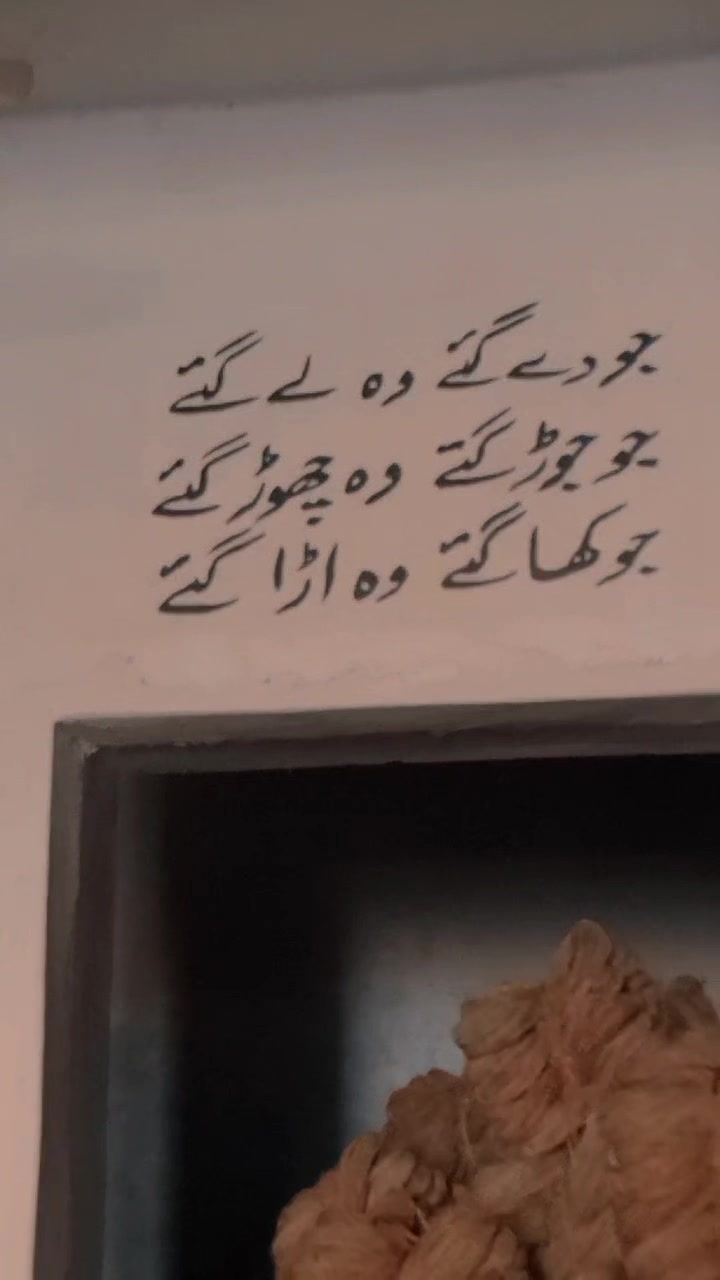 جو دے گئے وہ لے گئے
جو جوڑ گئے وہ چھوڑ گئے
جو کھا گئے وہ اڑا گئے